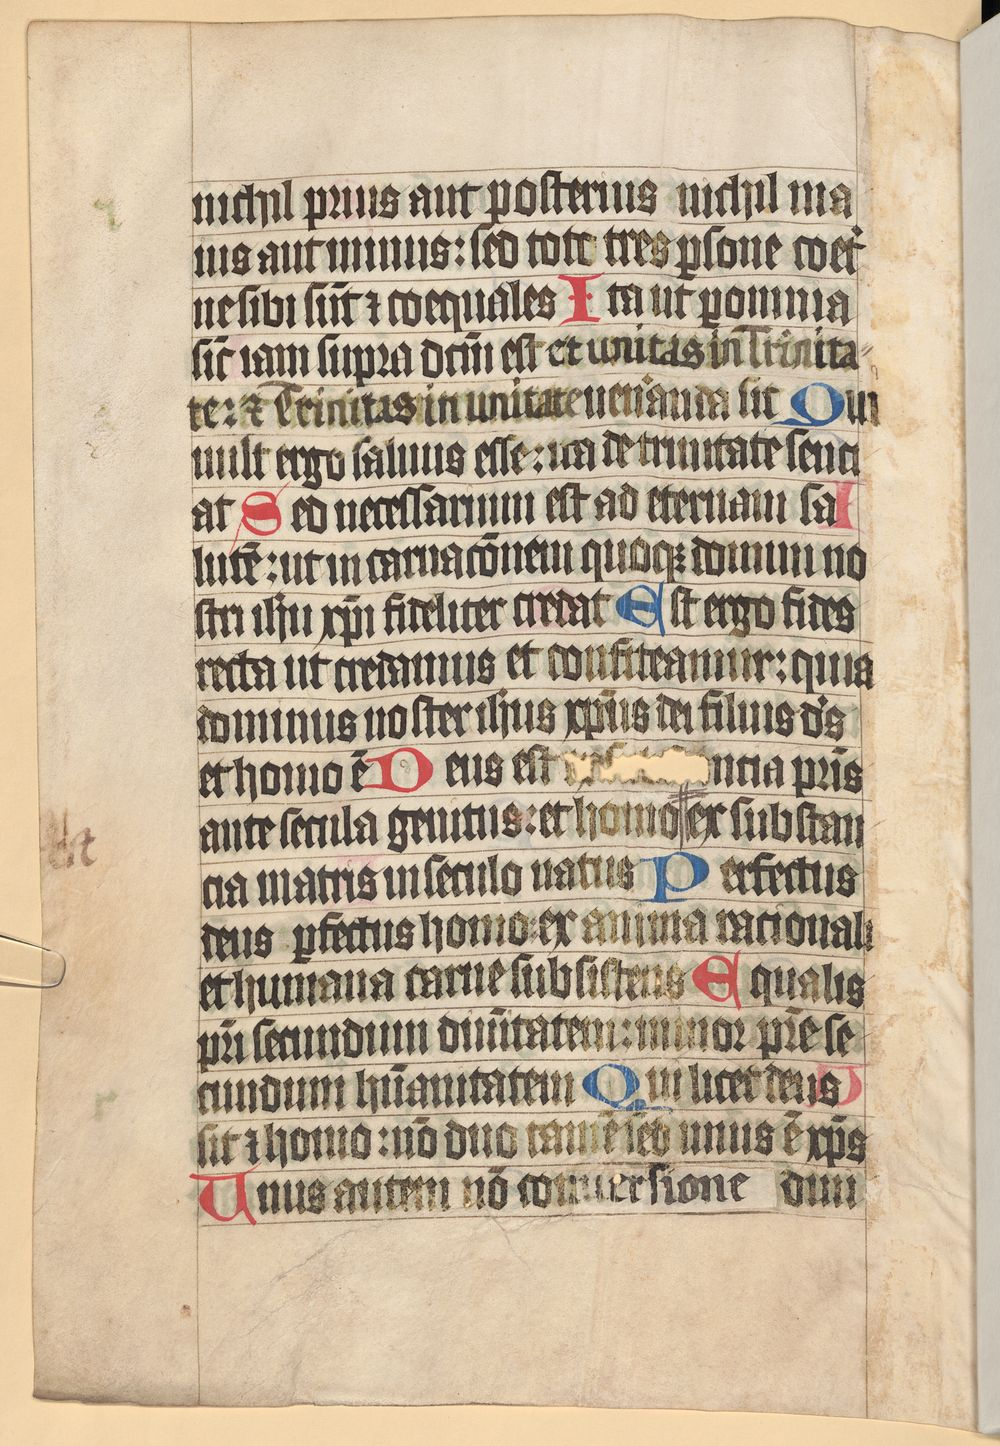 nichil prius aut posterius nichil ma
ius aut minus: sed tote tres psone coet
ne sibi sūt ⁊ coequales Ita ut p omnia
sic̄ iam supra dcm̄ est et unitas in Trinita
te: ⁊ Trinitas in unitate ueneranda sit Qui
uult ergo saluus esse: ita de trinitate senci
at Sed necessarium est ad eternam sa
lutē: ut incarnacōnem quoqꝫ domini no
stri ihu xpi fideliter credat Est ergo fides
recta ut credamus et confiteamur: quia
dominus noster ihus xpūs dei filius d's
et homo ē Deus est ncia pris̄
ante secula genitus: et homo ex substan
cia matris in seculo natus Perfectus
deus pfectus homo: ex anima racionali
et humana carne subsistens Equalis
prī secundum diuītatem: minor prē se
cundum hūanitatem Qui licet deus
sit ⁊ homo: nō duo tamē sed unus ē xp̄s
Unus autem nō conuersione diui